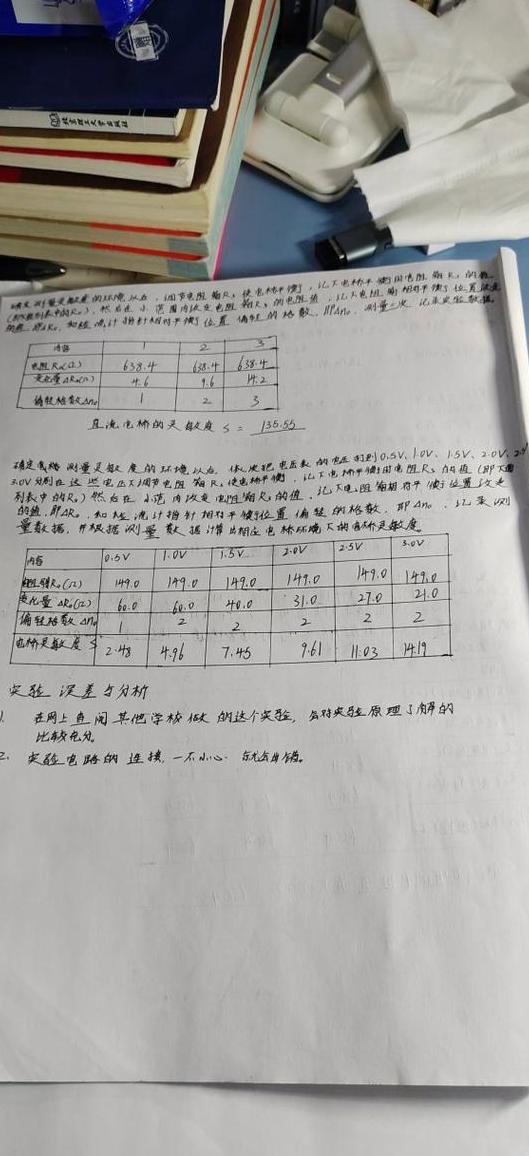 北京理工大学出版社
确定测量灵敏度的环境以后,调节电阻箱R。使电桥平衡,记下电桥平衡用电阻箱R。的值
(即下面列表中的R。),然后在小范围内改变电阻箱R。的电阻值,记下电阻箱相对平衡位置改变
的值,即ΔR。,和检流计指针相对平衡位置偏转的格数,即Δn。,测量三次,记录实验数据
内容 1 2 3
电阻R。(Ω) 638.4 638.4 638.4
变化量ΔR。(Ω) 4.6 9.6 14.2
偏转格数Δn。 1 2 3
直流电桥的灵敏度 S = 135.55
确定电桥测量灵敏度的环境以后,依次把电压表的电压调到0.5V、1.0V、1.5V、2.0V、2.5V
3.0V分别在这些电压下调节电阻箱R。使电桥平衡,记下电桥平衡用电阻R。的值(即下面
列表中的R。)然后在小范围内改变电阻箱R。的值,记下电阻箱相对平衡位置改变
的值,即ΔR。,和检流计指针相对平衡位置偏转的格数,即Δn。,记录测
量数据,并根据测量数据计算出相应电桥环境下的电桥灵敏度。
内容 0.5V 1.0V 1.5V 2.0V 2.5V 3.0V
电阻箱R。(Ω) 149.0 149.0 149.0 149.0 149.0 149.0
变化量ΔR。(Ω) 60.0 60.0 40.0 31.0 27.0 21.0
偏转格数Δn。 1 2 2 2 2 2
电桥灵敏度S 2.48 4.96 7.45 9.61 11.03 14.19
实验误差与分析
1. 在网上查阅其他学校做的这个实验,会对实验原理了解的
比较充分。
2. 实验电路的连接,一不小心就会出错。